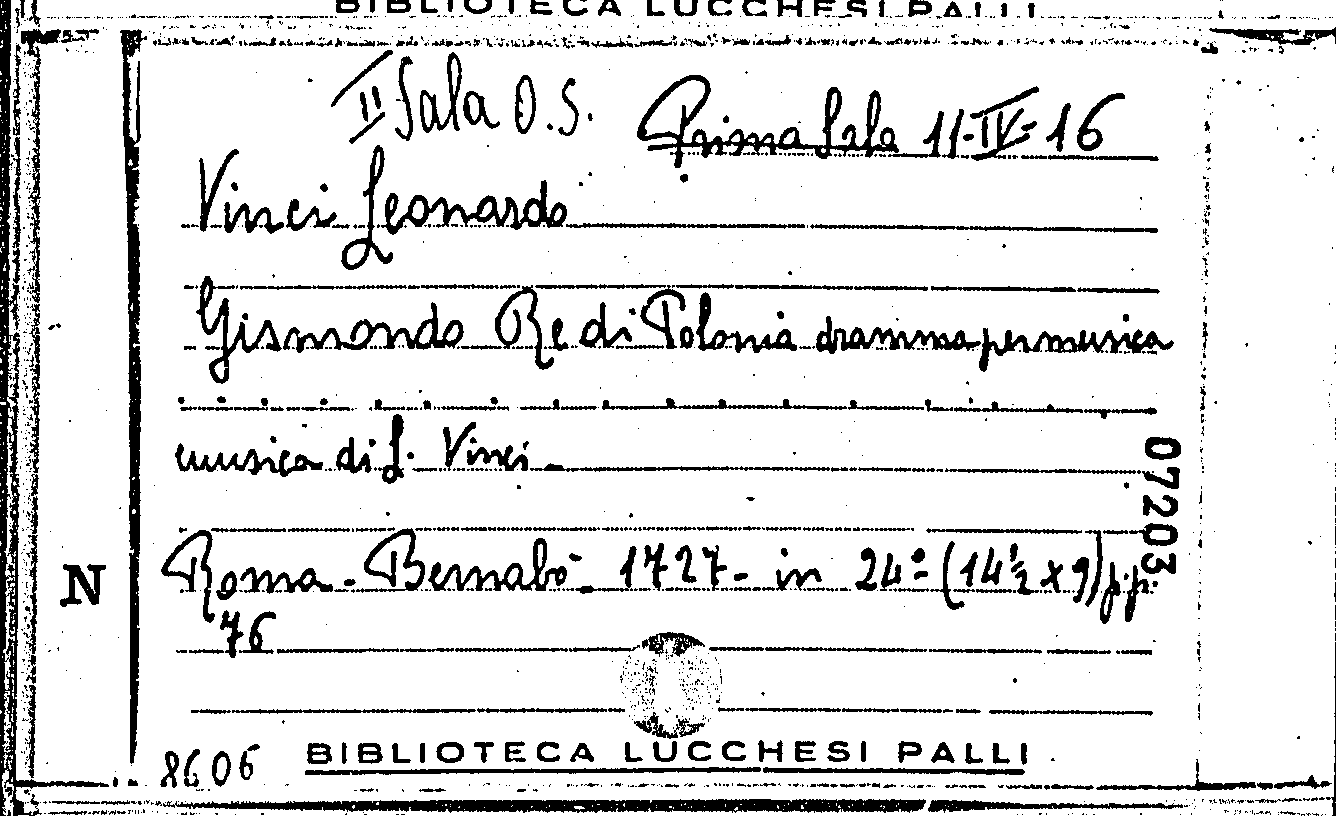 BIBLIOTECA LUCCHESI PALLI
II Sala O.S. Prima Sala 11-IV-16
Vinci Leonardo
Gismondo Re di Polonia dramma per musica
. . . . . . . . . . . . . . . .
musica di L. Vinci -
Roma - Bernabò - 1727 - in 24º (14½ x 9) pp.
76
07203
N
8606
BIBLIOTECA LUCCHESI PALLI